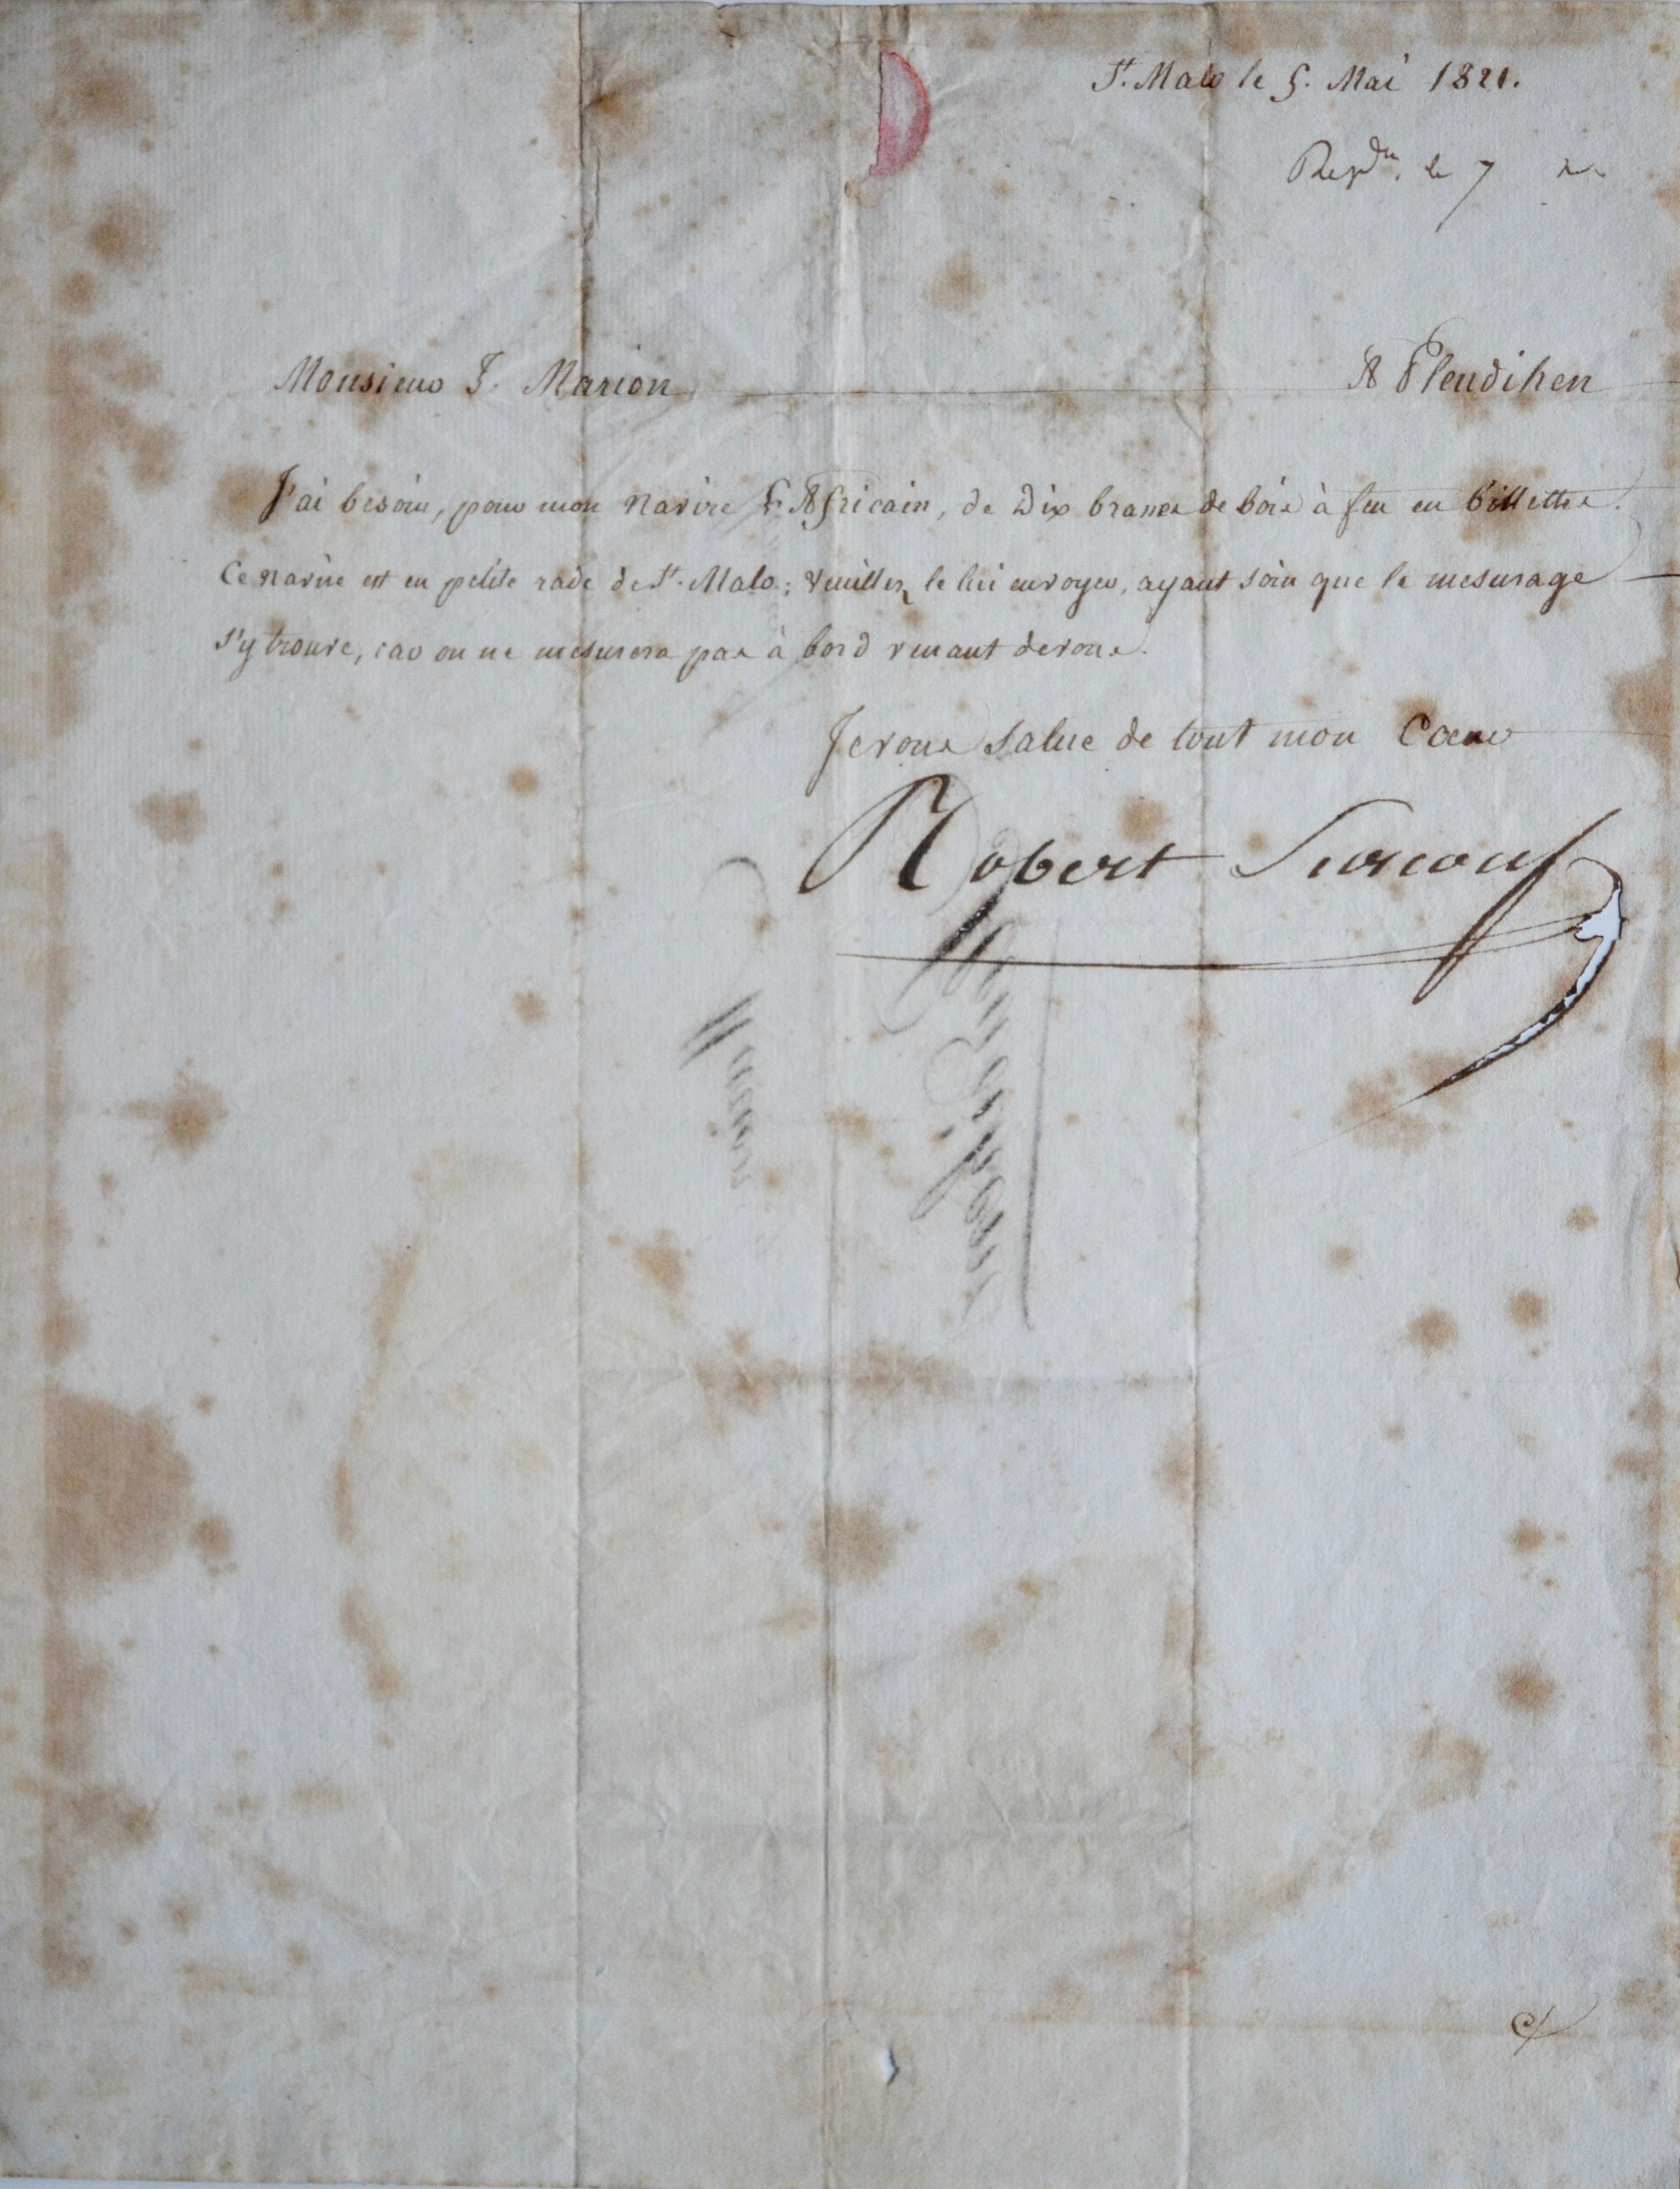 St. Malo le 5. Mai 1821.
Repdu. le 7
Monsieur F. Marion A Pleudihen
J'ai besoin, pour mon navire L'Africain, de Dix brasses de bois à feu en billettes.
Ce navire est en petite rade de St. Malo; veuillez le lui envoyer, ayant soin que le mesurage
s'y trouve, car on ne mesurera pas à bord venant de vous.
Je vous salue de tout mon Coeur
Robert Surcouf